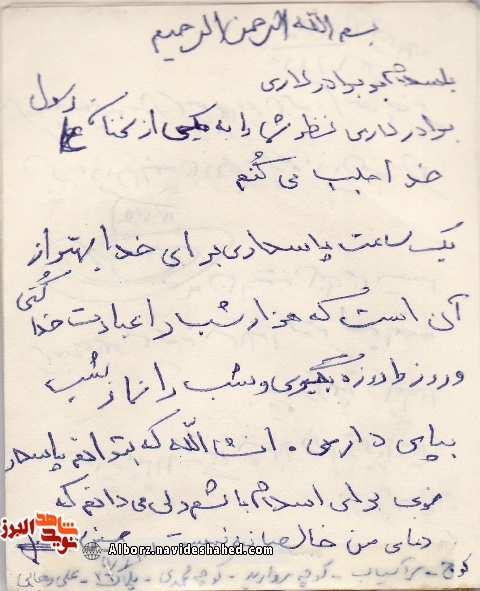 بسم الله الرحمن الرحیم
با سلام به برادر لاری
برادر لاری نظر شما را به یکی از سخنان رسول
خدا جلب می کُنم
یک ساعت پاسداری برای خدا بهتر از
آن است که هزار شب را عبادت خدا کُنی
و روز را روزه بگیری و شب را نماز شب
بپای داری . انشاالله که بتوانم پاسدار
خوبی برای اسلام باشم ولی می دانم که
دعای من خالصانه نیست
کرج - سرآسیاب - کوچه مروارید - کوچه محمدی - پلاک
شاهد
نوید البرز
Alborz.navideshahed.com